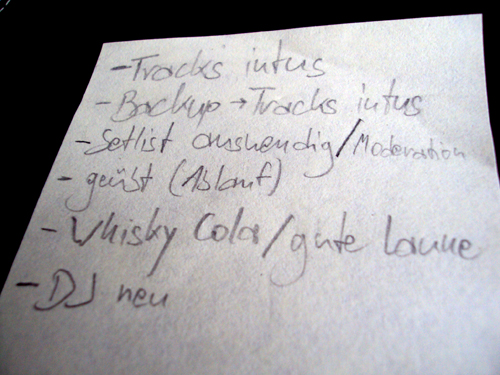 - Tracks intus
- Backup → Tracks intus
- Setlist auswendig/Moderation
- geübt (Ablauf)
- Whisky Cola/gute Laune
- DJ neu